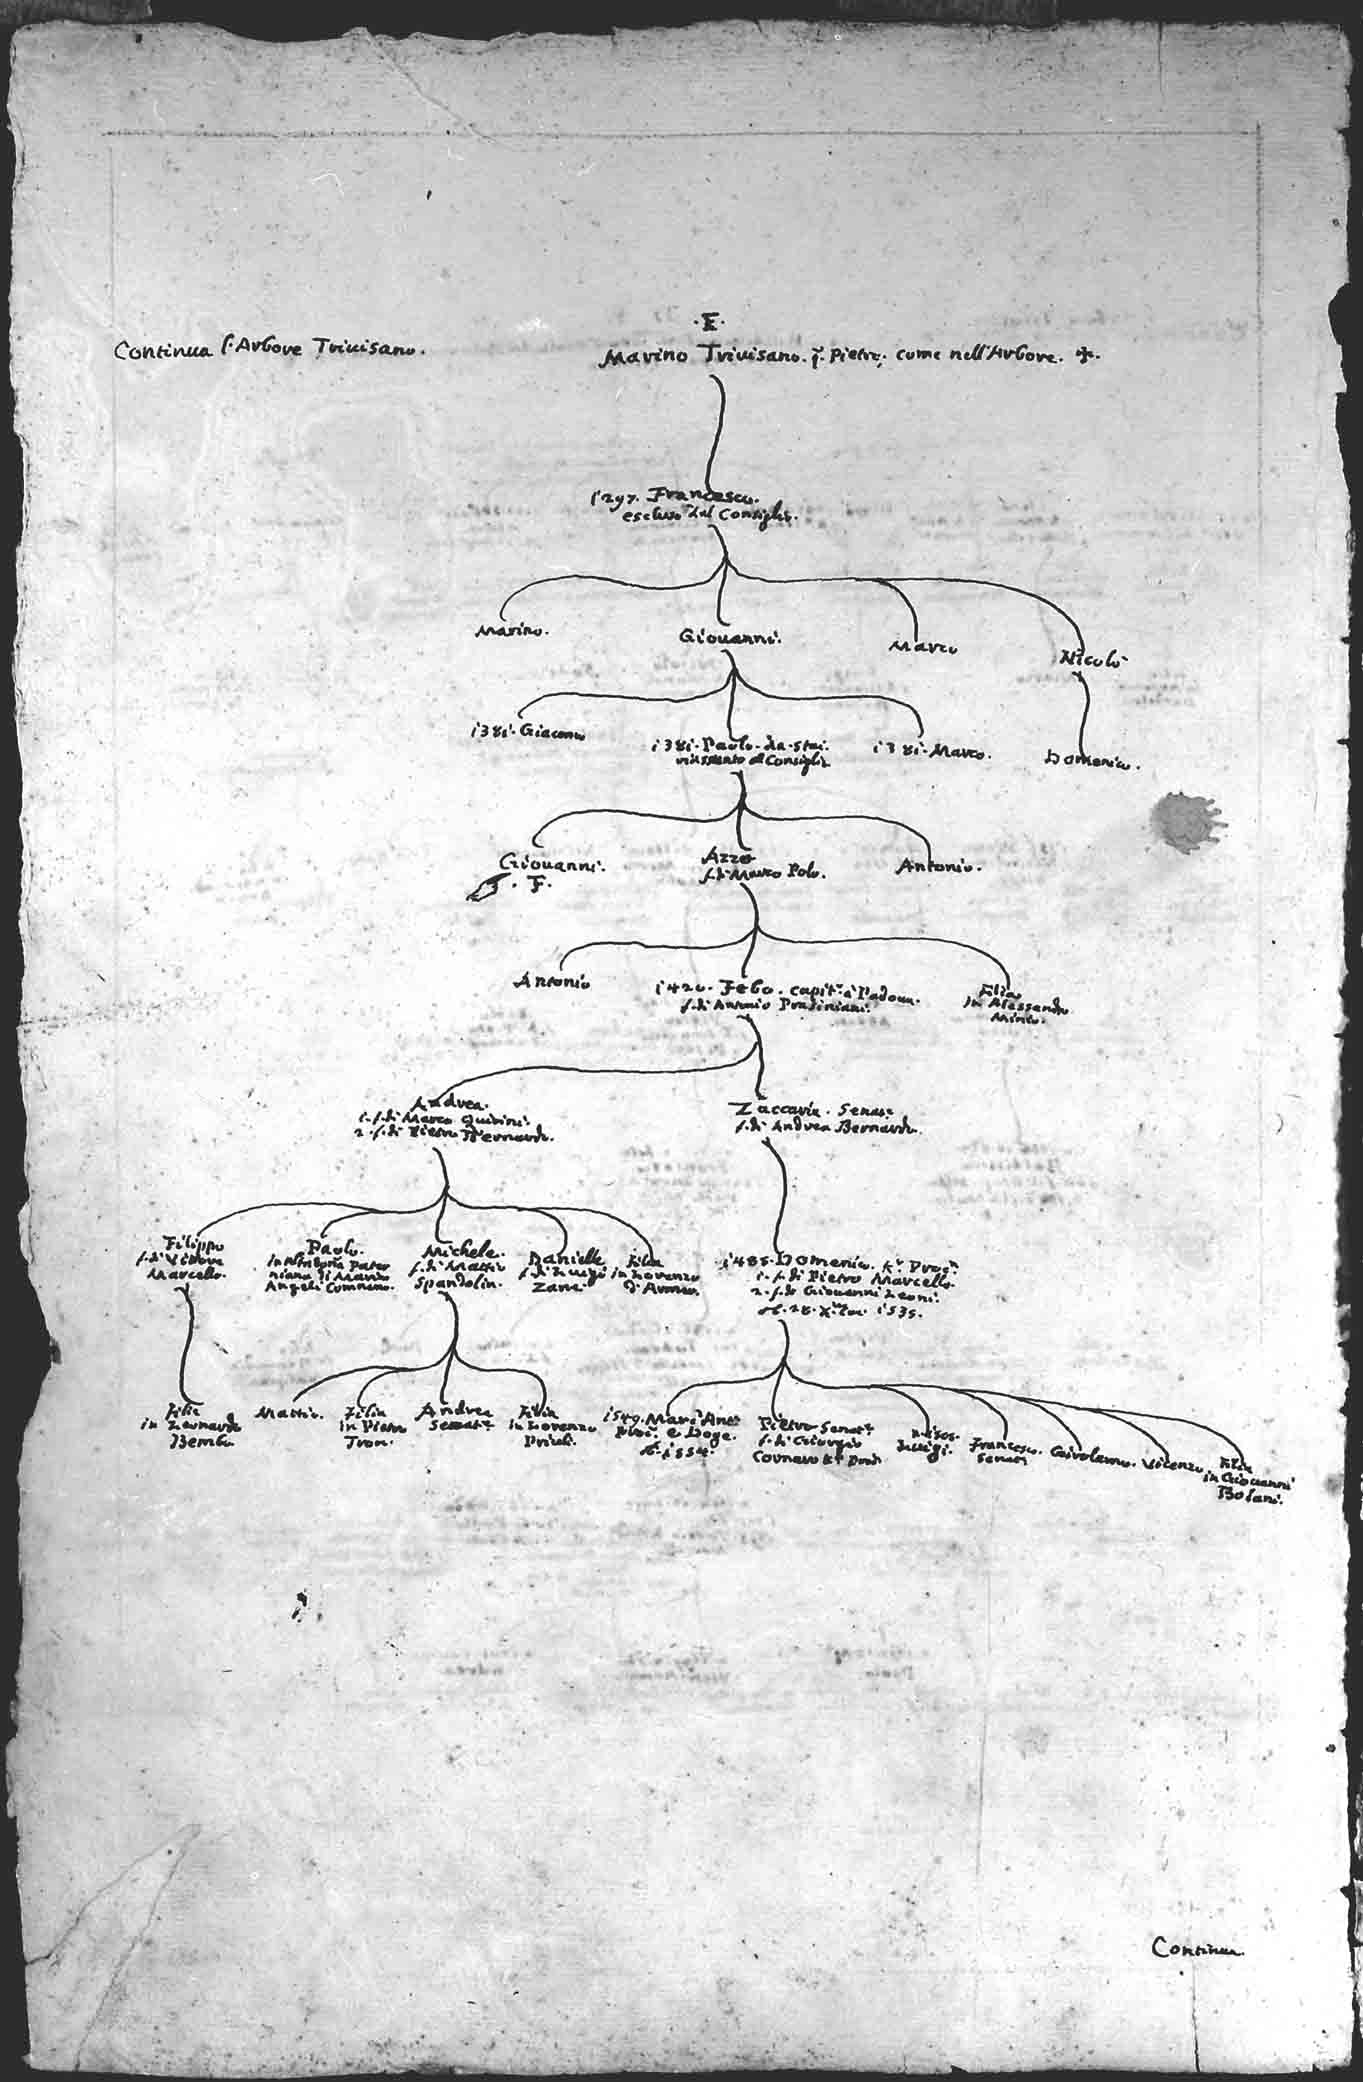 Continua l'Arbore Trivisano.
.E.
Marino Trivisano. q. Pietro, come nell'Arbore. ✢.
1297. Francesco.
escluso dal Consiglio.
Marino.
Giovanni.
Marco
Nicolò
1381. Giacomo
1381. Paolo da
al Consiglio
1381. Marco.
Domenico.
Giovanni.
. F.
Azzo
f. di Marco Polo.
Antonio.
Antonio
1420. Febo. Capit.º à Padoua.
f. di Antonio
Filia
in Alessandro
Minio.
Andrea.
1. f. di Marco Quirini.
2. f. di Pietro Bernardo.
Zaccaria. Senat.r
f. di Andrea Bernardo.
Filippo
f. di Vettore
Marcello.
Paolo.
di Mario
Angeli Comneno.
Michele.
f. di Mattio
Spandolin.
Danielle
f. di Luigi
Zane
Filia
in Lorenzo
d'Armer.
1485. Domenico. K.r Proc.r
1. f. di Pietro Marcello.
2. f. di Giovanni Leoni.
ob. 28. Xmbre 1535.
Filia
in Leonardo
Bembo
Mattio.
Filia
in Pietro
Tron.
Andrea
Senat.r
Filia
in Lorenzo
Priuli.
1549. Marc'Ant.º
Proc. e Doge.
ob. 1554.
Pietro Senat.r
f. di Giorgio
Cornaro K.r Proc.r
n. 1505.
Luigi.
Francesco.
Senat.r
Girolamo.
Vicenzo
Filia
in Giovanni
Bolani.
Continua